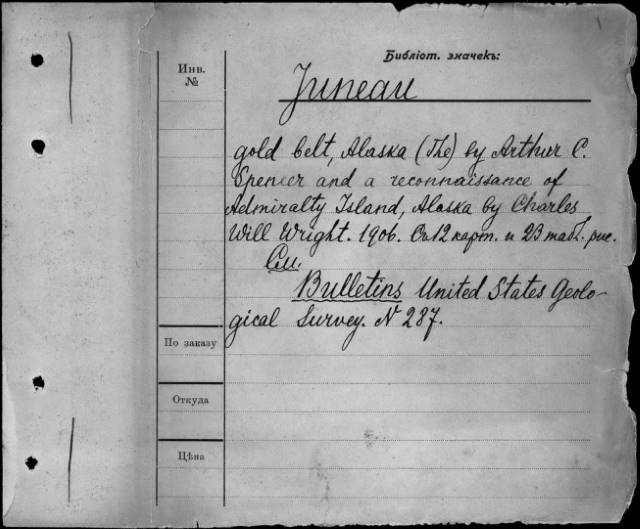 Библіот. значекъ:
Инв.
№
Juneau
gold belt, Alaska (The) by Arthur C.
Spencer and a reconnaissance of
Admiralty Island, Alaska by Charles
Will Wright. 1906. Съ 12 карт. и 23 табл. рис.
См.
Bulletins United States Geolo-
gical Survey. N 287.
По заказу
Откуда
Цѣна